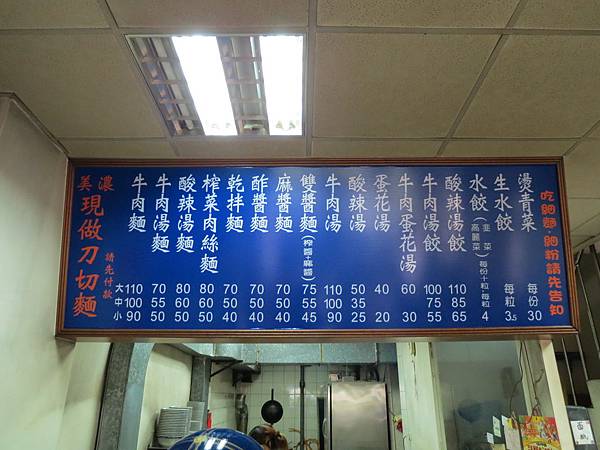 美濃
現做刀切麵
請先付款
大 中 小
牛肉麵 110 100 90
牛肉湯麵 70 55 50
酸辣湯麵 80 60 50
榨菜肉絲麵 80 60 50
乾拌麵 70 50 40
酢醬麵 70 50 40
麻醬麵 70 50 40
雙醬麵(榨醬+麻醬) 75 55 45
牛肉湯 110 100 90
酸辣湯 50 35 25
蛋花湯 40 20
牛肉蛋花湯 60 30
牛肉湯餃 100 75 55
酸辣湯餃 110 85 65
水餃(韭菜 高麗菜)每份十粒,每粒 4
生水餃 每粒 3.5
燙青菜 每份 30
吃細麵,細粉請先告知